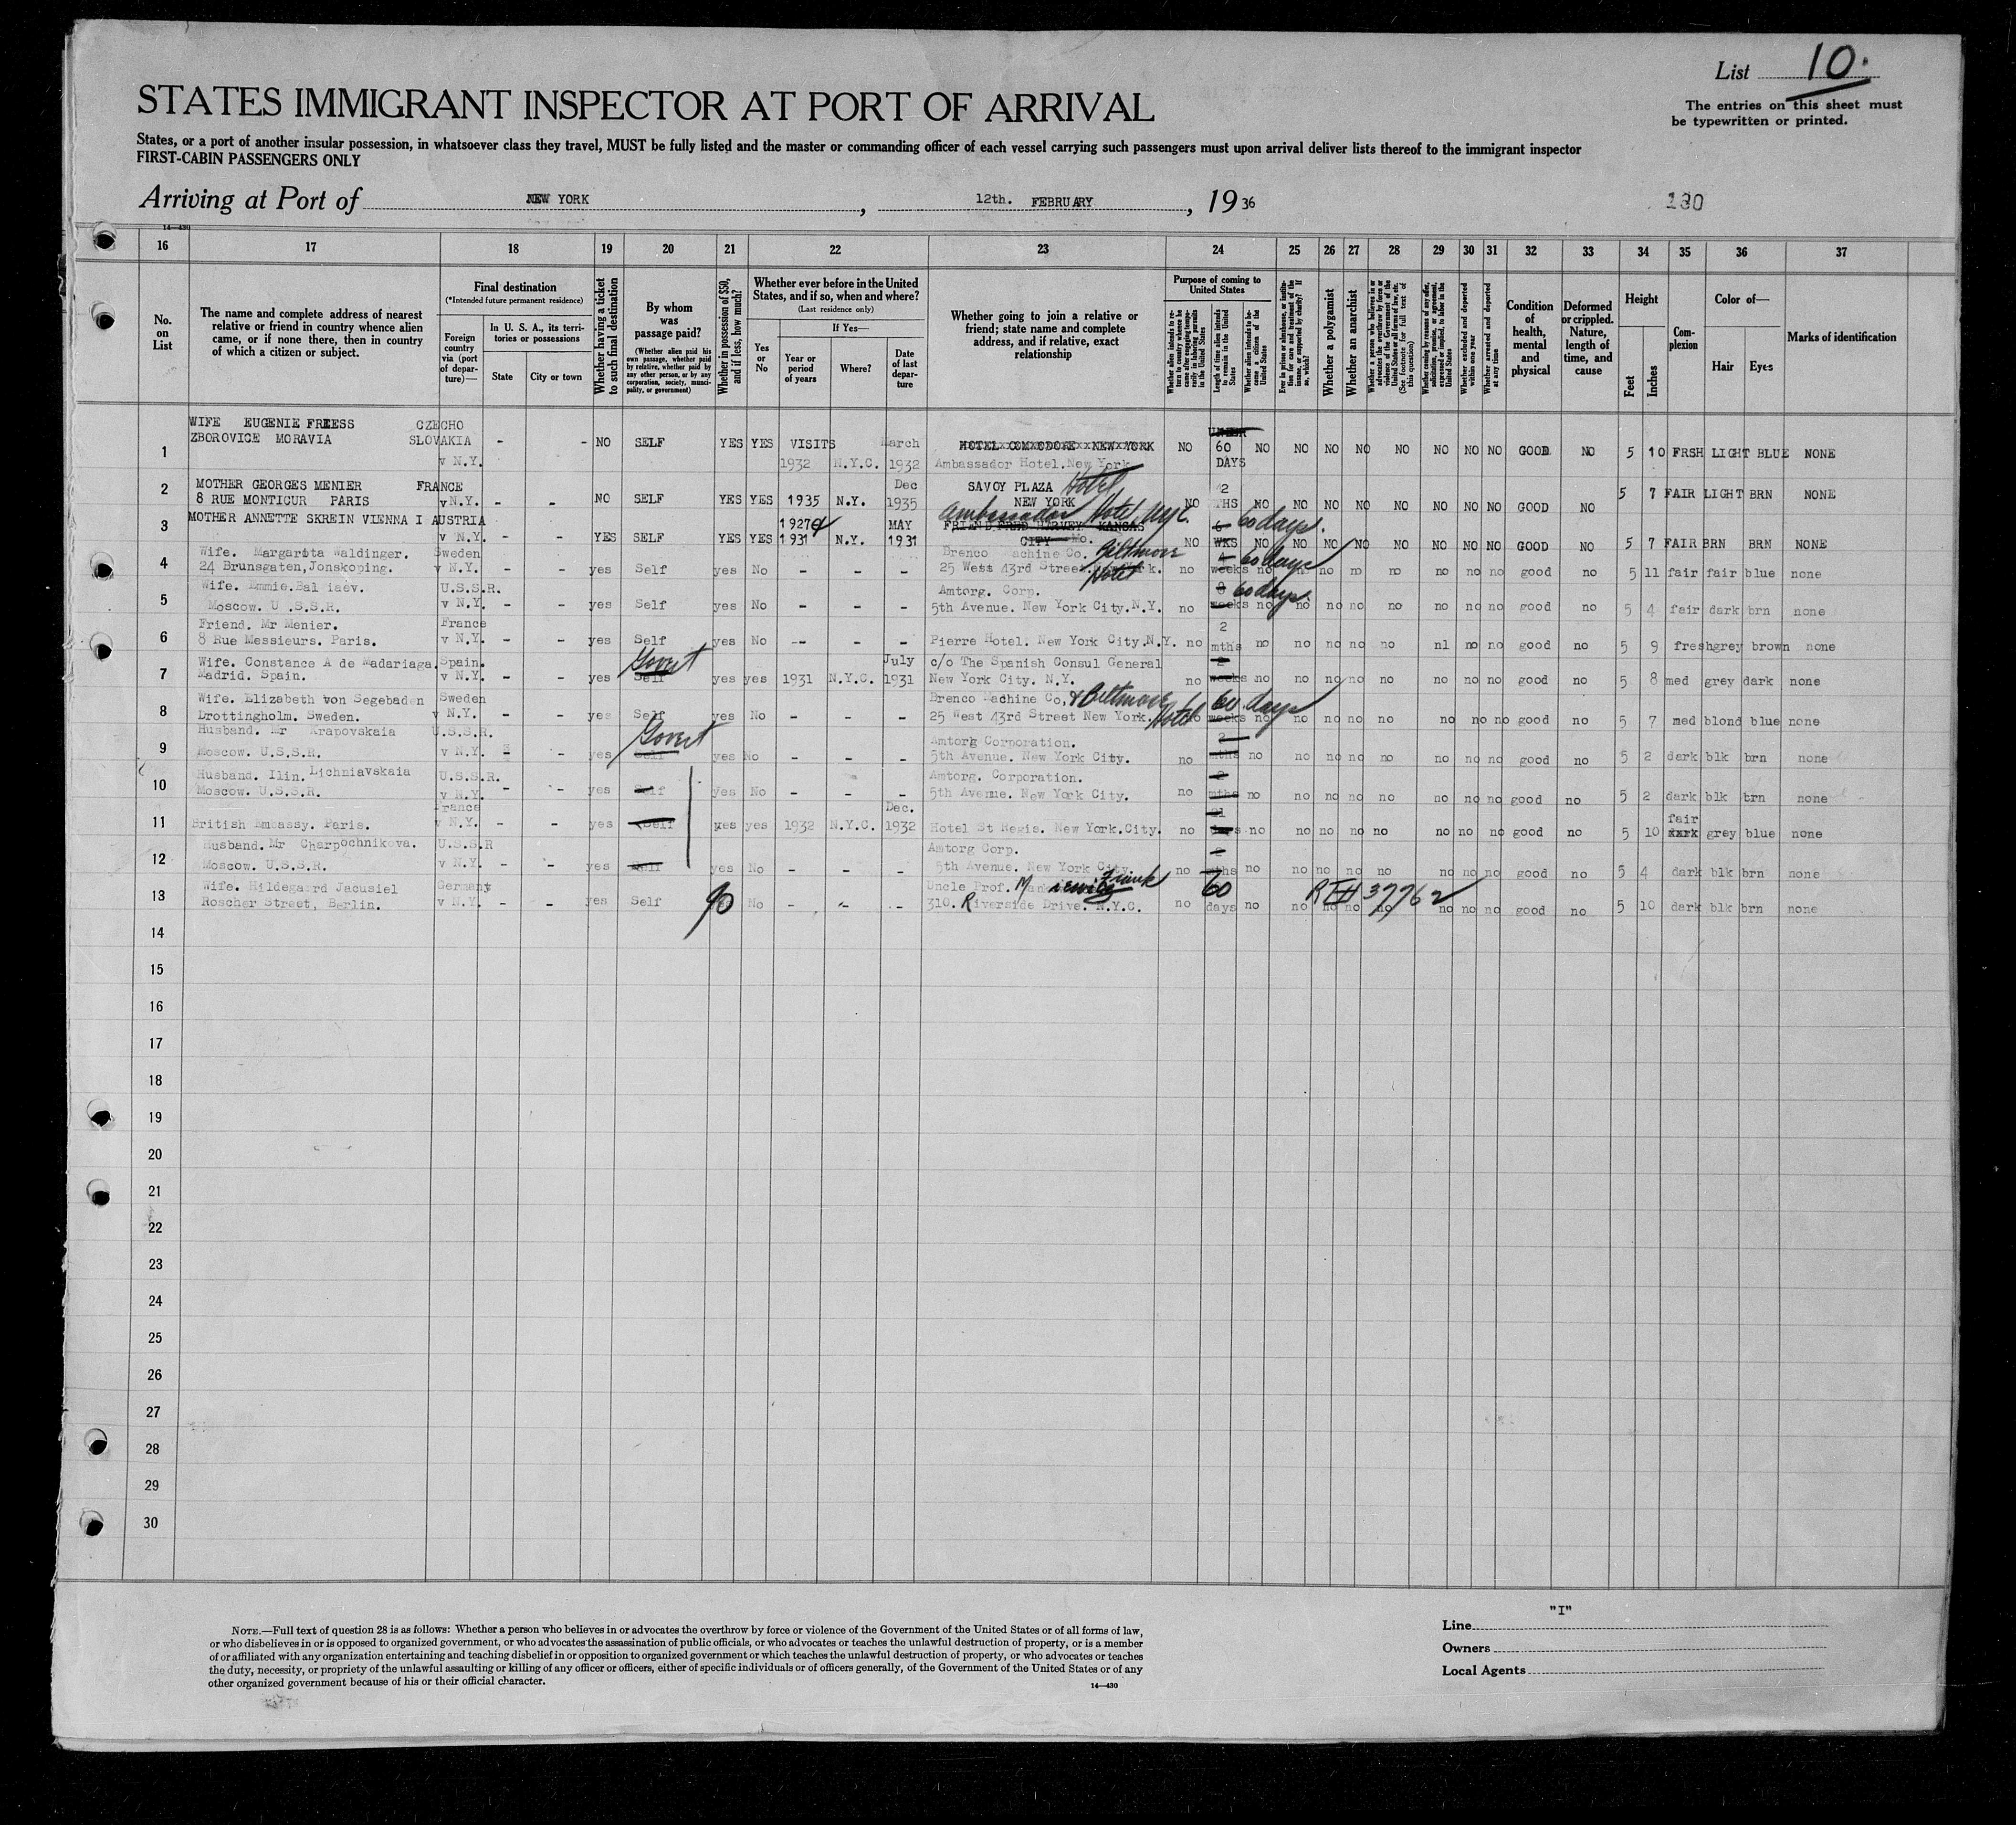 List 10.
The entries on this sheet must
be typewritten or printed.
STATES IMMIGRANT INSPECTOR AT PORT OF ARRIVAL
States, or a port of another insular possession, in whatsoever class they travel, MUST be fully listed and the master or commanding officer of each vessel carrying such passengers must upon arrival deliver lists thereof to the immigrant inspector
FIRST-CABIN PASSENGERS ONLY
Arriving at Port of NEW YORK, 12th. FEBRUARY, 1936
130
14—430
16 17 18 19 20 21 22 23 24 25 26 27 28 29 30 31 32 33 34 35 36 37
No. on List
The name and complete address of nearest relative or friend in country whence alien came, or if none there, then in country of which a citizen or subject.
Final destination
(*Intended future permanent residence)
Foreign country via (port of departure)—
In U. S. A., its territories or possessions
State
City or town
Whether having a ticket to such final destination
By whom was passage paid?
(Whether alien paid his own passage, whether paid by relative, whether paid by any other person, or by any corporation, society, municipality, or government)
Whether in possession of $50, and if less, how much?
Whether ever before in the United States, and if so, when and where?
(Last residence only)
Yes or No
If Yes—
Year or period of years
Where?
Date of last departure
Whether going to join a relative or friend; state name and complete address, and if relative, exact relationship
Purpose of coming to United States
Whether alien intends to return to country whence he came after engaging temporarily in laboring pursuits in the United States
Length of time alien intends to remain in the United States
Whether alien intends to become a citizen of the United States
Ever in prison or almshouse, or institution for care and treatment of the insane, or supported by charity? If so, which?
Whether a polygamist
Whether an anarchist
Whether a person who believes in or advocates the overthrow by force or violence of the Government of the United States or all forms of law, etc. (See footnote for full text of this question)
Whether coming by reasons of any offer, solicitation, promise, or agreement, expressed or implied, to labor in the United States
Whether excluded and deported within one year
Whether arrested and deported at any time
Condition of health, mental and physical
Deformed or crippled. Nature, length of time, and cause
Height
Feet
Inches
Complexion
Color of—
Hair
Eyes
Marks of identification
WIFE EUGENIE FRIESS CZECHO
1 ZBOROVICE MORAVIA SLOVAKIA - - NO SELF YES YES VISITS March HOTEL COMMODORE NEW YORK NO 60 NO NO NO NO NO NO NO NO GOOD NO 5 10 FRSH LIGHT BLUE NONE
v N.Y. 1932 N.Y.C. 1932 Ambassador Hotel. New York DAYS
2 MOTHER GEORGES MENIER FRANCE Dec SAVOY PLAZA Hotel 2
8 RUE MONTICUR PARIS v N.Y. - - NO SELF YES YES 1935 N.Y. 1935 NEW YORK NO THS NO NO NO NO NO NO NO NO GOOD NO 5 7 FAIR LIGHT BRN NONE
3 MOTHER ANNETTE SKREIN VIENNA I AUSTRIA 1927 MAY Ambassador Hotel NYC. FRIEND FRED HARVEY KANSAS 6 60 days.
v N.Y. - - YES SELF YES YES 1931 N.Y. 1931 CITY Mo. NO WKS NO NO NO NO NO NO NO NO GOOD NO 5 7 FAIR BRN BRN NONE
4 Wife. Margarota Waldinger. Sweden Brenco Machine Co. Biltmore Hotel 60 days
24 Brunsgaten, Jonskoping. v N.Y. - - yes Self yes No - - - 25 Wess 43rd Street no weeks no no no no no no no no good no 5 11 fair fair blue none
5 Wife. Emmie. Bal iaev. U.S.S.R. Amtorg. Corp. 8 60 days.
Moscow. U .S.S.R. v N.Y. - - yes Self yes No - - - 5th Avenue. New York City. N.Y. no weeks no no no no no no no no good no 5 4 fair dark brn none
6 Friend. Mr Menier. France 2
8 Rue Messieurs. Paris. v N.Y. - - yes Self yes No -- - - Pierre Hotel. New York City. N.Y. no mths no no no no no nl no no good no 5 9 fresh grey brown none
7 Wife. Constance A de Madariaga. Spain. Govert July c/o The Spanish Consul General 2
Madrid. Spain. v N.Y. - - yes Self yes yes 1931 N.Y.C. 1931 New York City. N.Y. no weeks no no no no no no no no good no 5 8 med grey dark none
8 Wife. Elizabeth von Segebaden Sweden Brenco Machine Co, & Biltmore Hotel 60 days
Drottingholm. Sweden. v N.Y. - - yes Self yes No - - - 25 West 43rd Street New York. weeks no no no no no no no no good no 5 7 med blond blue none
9 Husband. Mr Krapovskaia U.S.S.R. Govert Amtorg Corporation. 2
Moscow. U.S.S.R. v N.Y. - - yes Self yes No - - - 5th Avenue. New York City. no mths no no no no no no no no good no 5 2 dark blk brn none
10 Husband. Ilin. Lichniavskaia U.S.S.R. Amtorg. Corporation. 2
Moscow. U.S.S.R. v N.Y. - - yes Self yes No - - - 5th Avenue. New York City. no mths no no no no no no no no good no 5 2 dark blk brn none
11 France Dec. 21 fair
British Embassy. Paris. v N.Y. - - yes Self yes yes 1932 N.Y.C. 1932 Hotel St Regis. New York. City. no days no no no no no no no no good no 5 10 dark grey blue none
12 Husband. Mr Charpochnikova. U.S.S.R Amtorg Corp. 2
Moscow. U.S.S.R. v N.Y. - - yes Self yes No - - - 5th Avenue. New York City. no mths no no no no no no no no good no 5 4 dark blk brn none
13 Wife. Hildegaard Jacusiel Germany Uncle Prof. Frank 60 RTH 37762
Roscher Street, Berlin. v N.Y. - - yes Self 90 No - - - 310. Riverside Drive. N.Y.C. no days no no no no no no no no good no 5 10 dark blk brn none
14
15
16
17
18
19
20
21
22
23
24
25
26
27
28
29
30
NOTE.—Full text of question 28 is as follows: Whether a person who believes in or advocates the overthrow by force or violence of the Government of the United States or of all forms of law,
or who disbelieves in or is opposed to organized government, or who advocates the assassination of public officials, or who advocates or teaches the unlawful destruction of property, or is a member
of or affiliated with any organization entertaining and teaching disbelief in or opposition to organized government or which teaches the unlawful destruction of property, or who advocates or teaches
the duty, necessity, or propriety of the unlawful assaulting or killing of any officer or officers, either of specific individuals or of officers generally, of the Government of the United States or of any
other organized government because of his or their official character.
14—430
"I"
Line
Owners
Local Agents